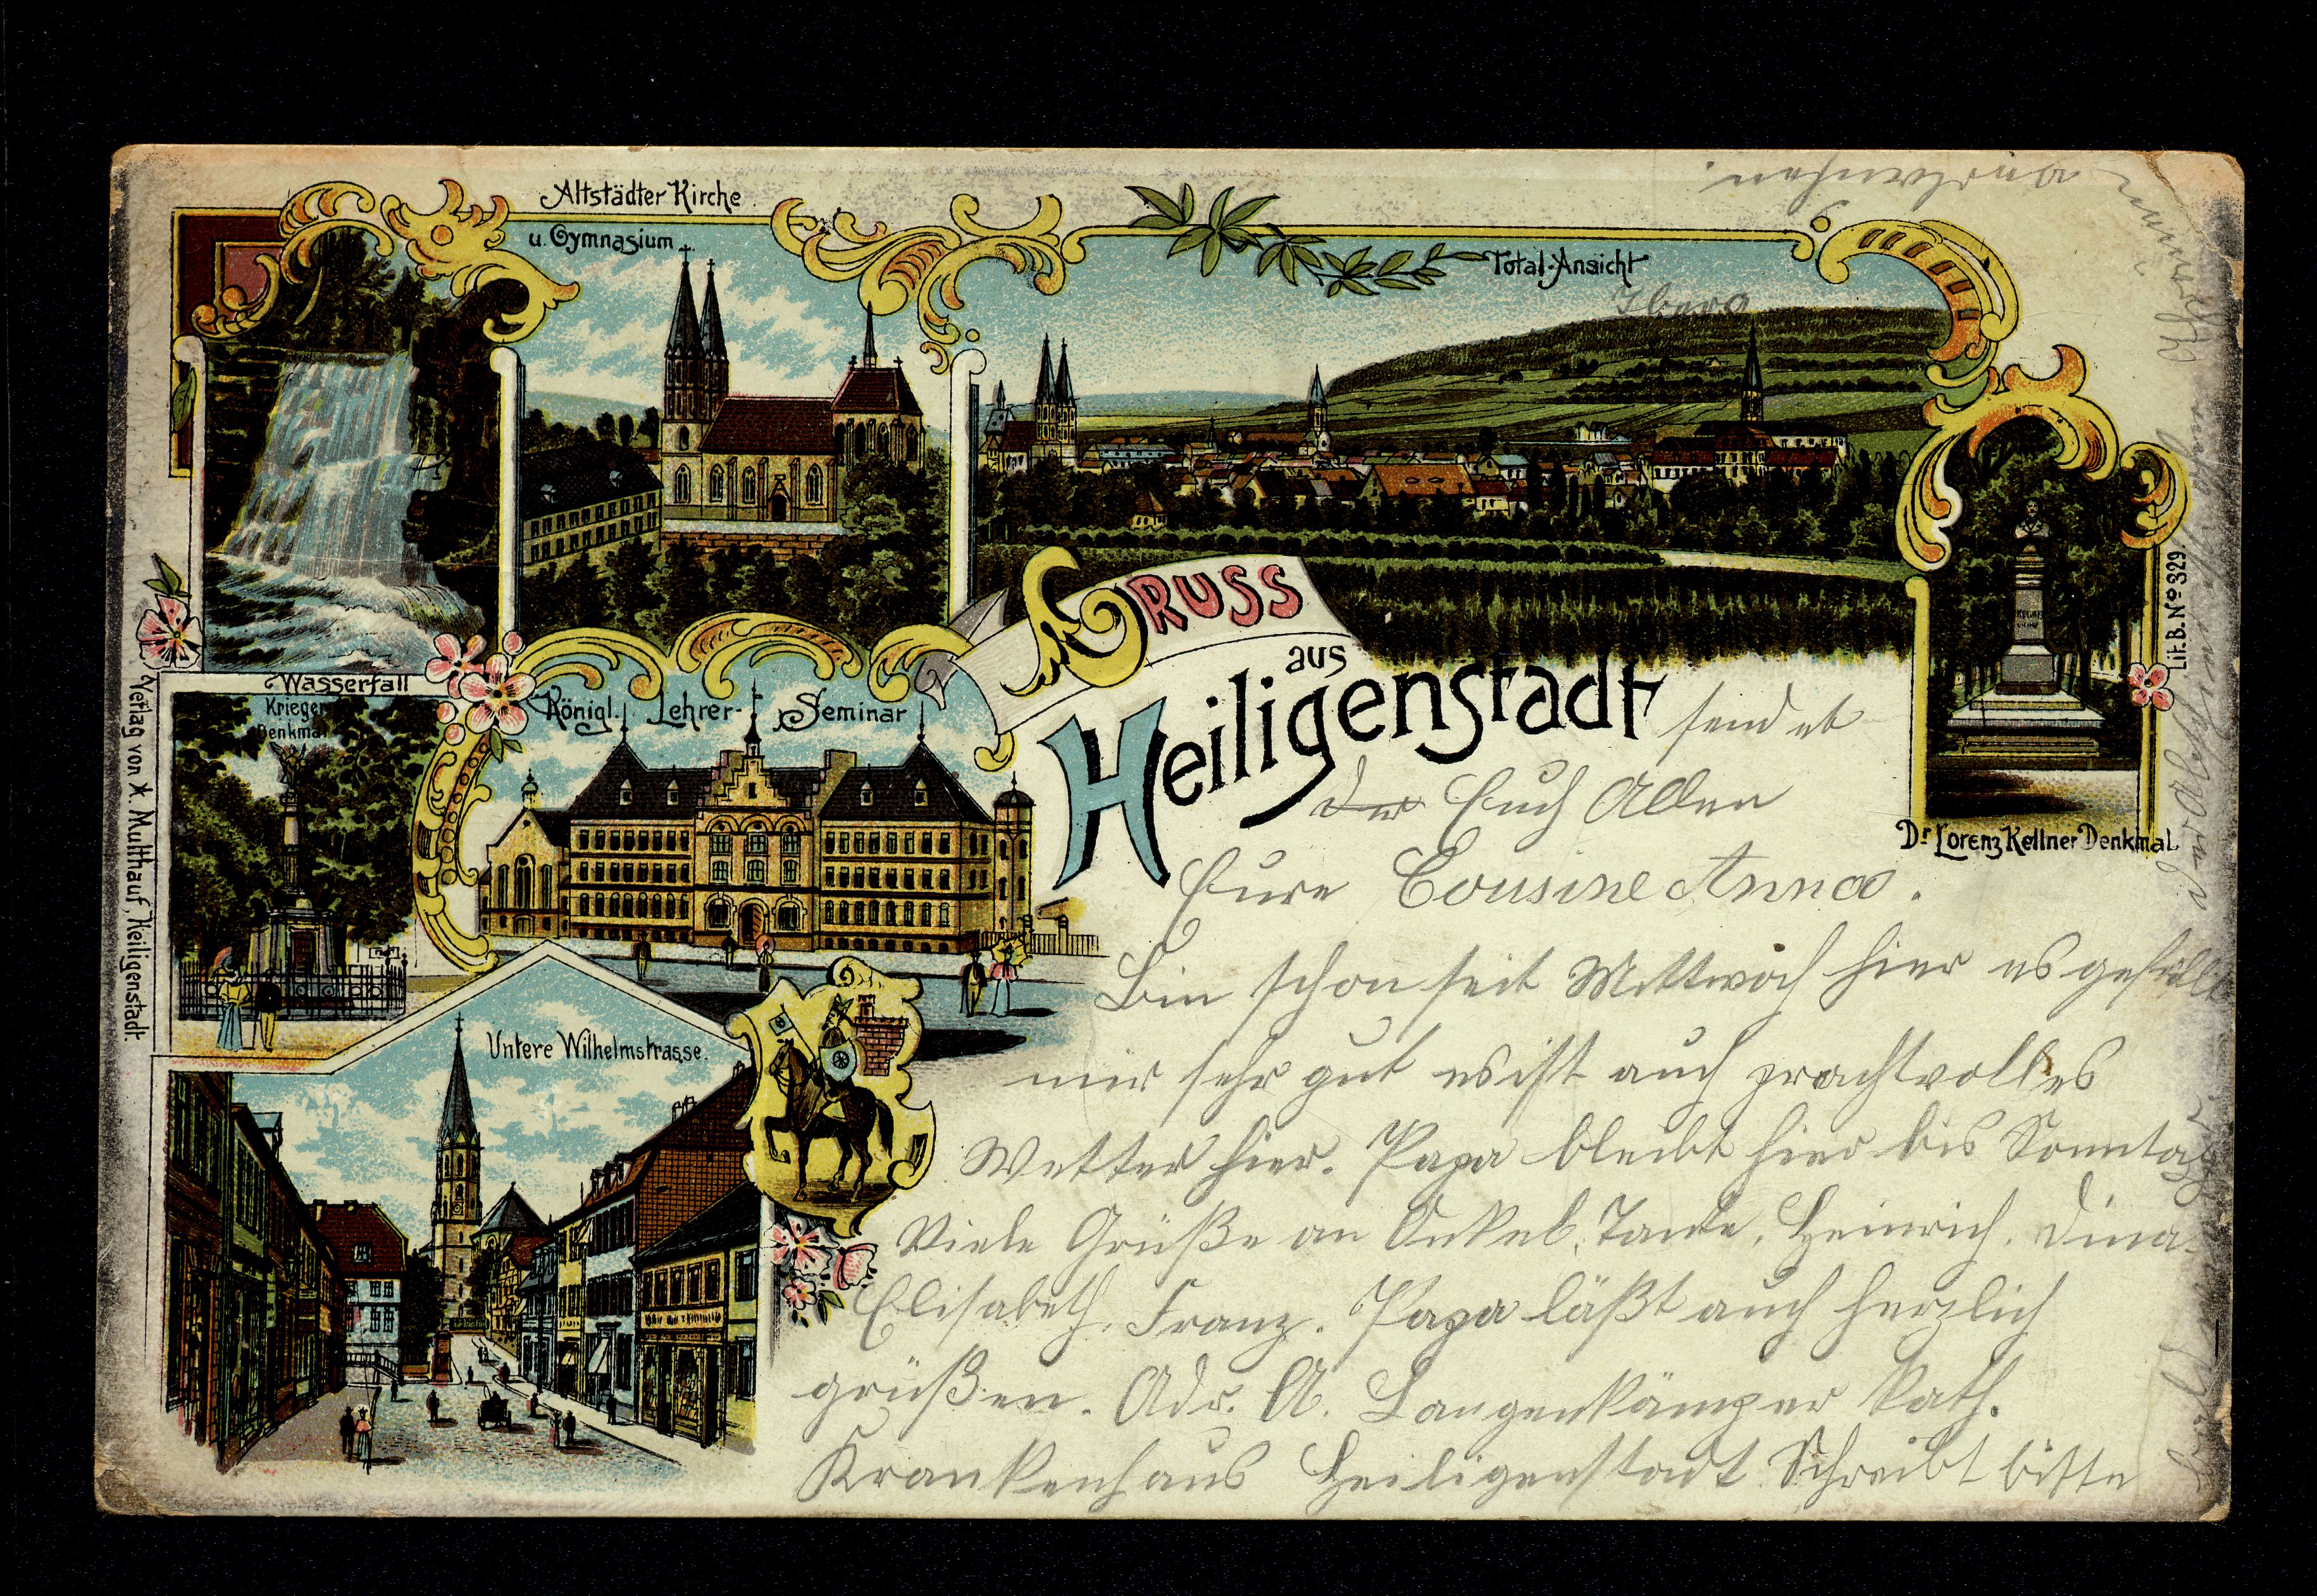 Altstädter Kirche
u. Gymnasium
Total-Ansicht
Iberg
Wasserfall
Krieger
Denkmal
Königl. Lehrer-Seminar
Untere Wilhelmstrasse.
Dr Lorenz Kellner Denkmal
Lit. B. No 329
Verlag von X. Multhauf, Heiligenstadt.
GRUSS
aus
Heiligenstadt
sendet
der Euch Allen
Eure Cousine Anna.
Bin schon seit Mittwoch hier es gefällt
mir sehr gut es ist auch prachtvolles
Wetter hier. Papa bleibt hier bis Sonntag
Viele Grüße an Onkel, Tante, Heinrich, Dina
Elisabeth, Franz. Papa läßt auch herzlich
grüßen. Adr. A. Langenkämper kath.
Krankenhaus Heiligenstadt Schreibt bitte
bald